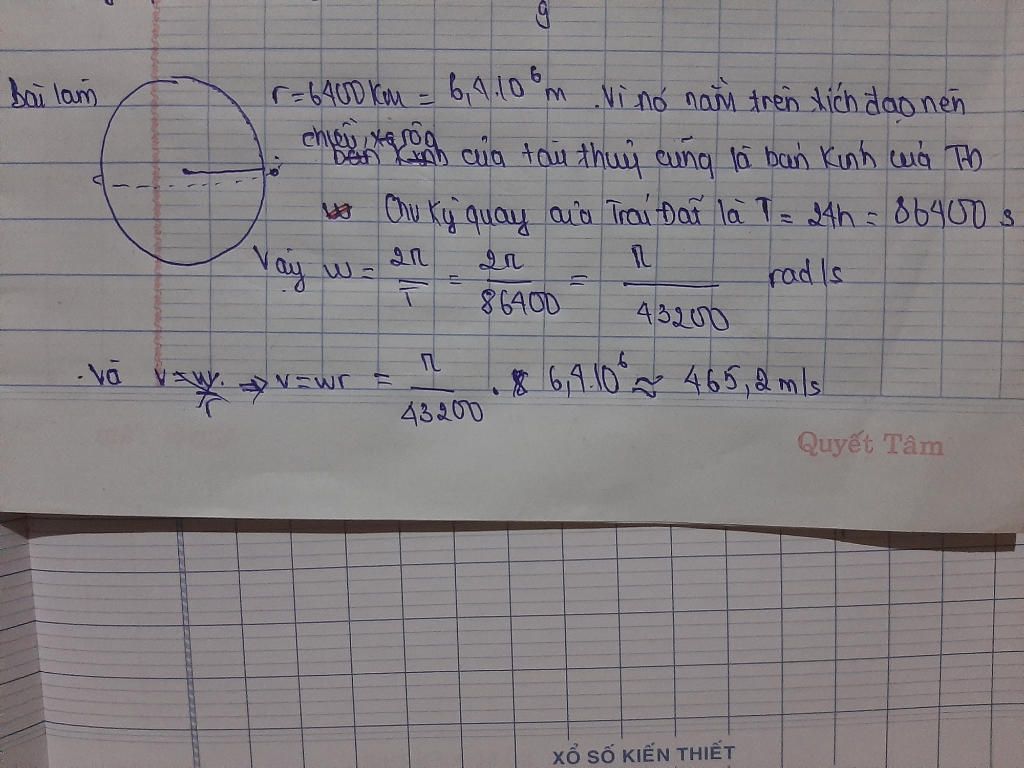 g
Bài làm
r = 6400 Km = 6,4.10⁶ m . Vì nó nằm trên xích đạo nên
chiều rộng
bán kính của tàu thuỷ cũng là bán kính của TĐ
Chu kỳ quay của Trái Đất là T = 24h = 86400 s
Vậy w = 2π/T = 2π/86400 = π/43200 rad/s
. Và v = w/r => v = wr = π/43200 . 6,4.10⁶ ≈ 465,2 m/s
Quyết Tâm
XỔ SỐ KIẾN THIẾT